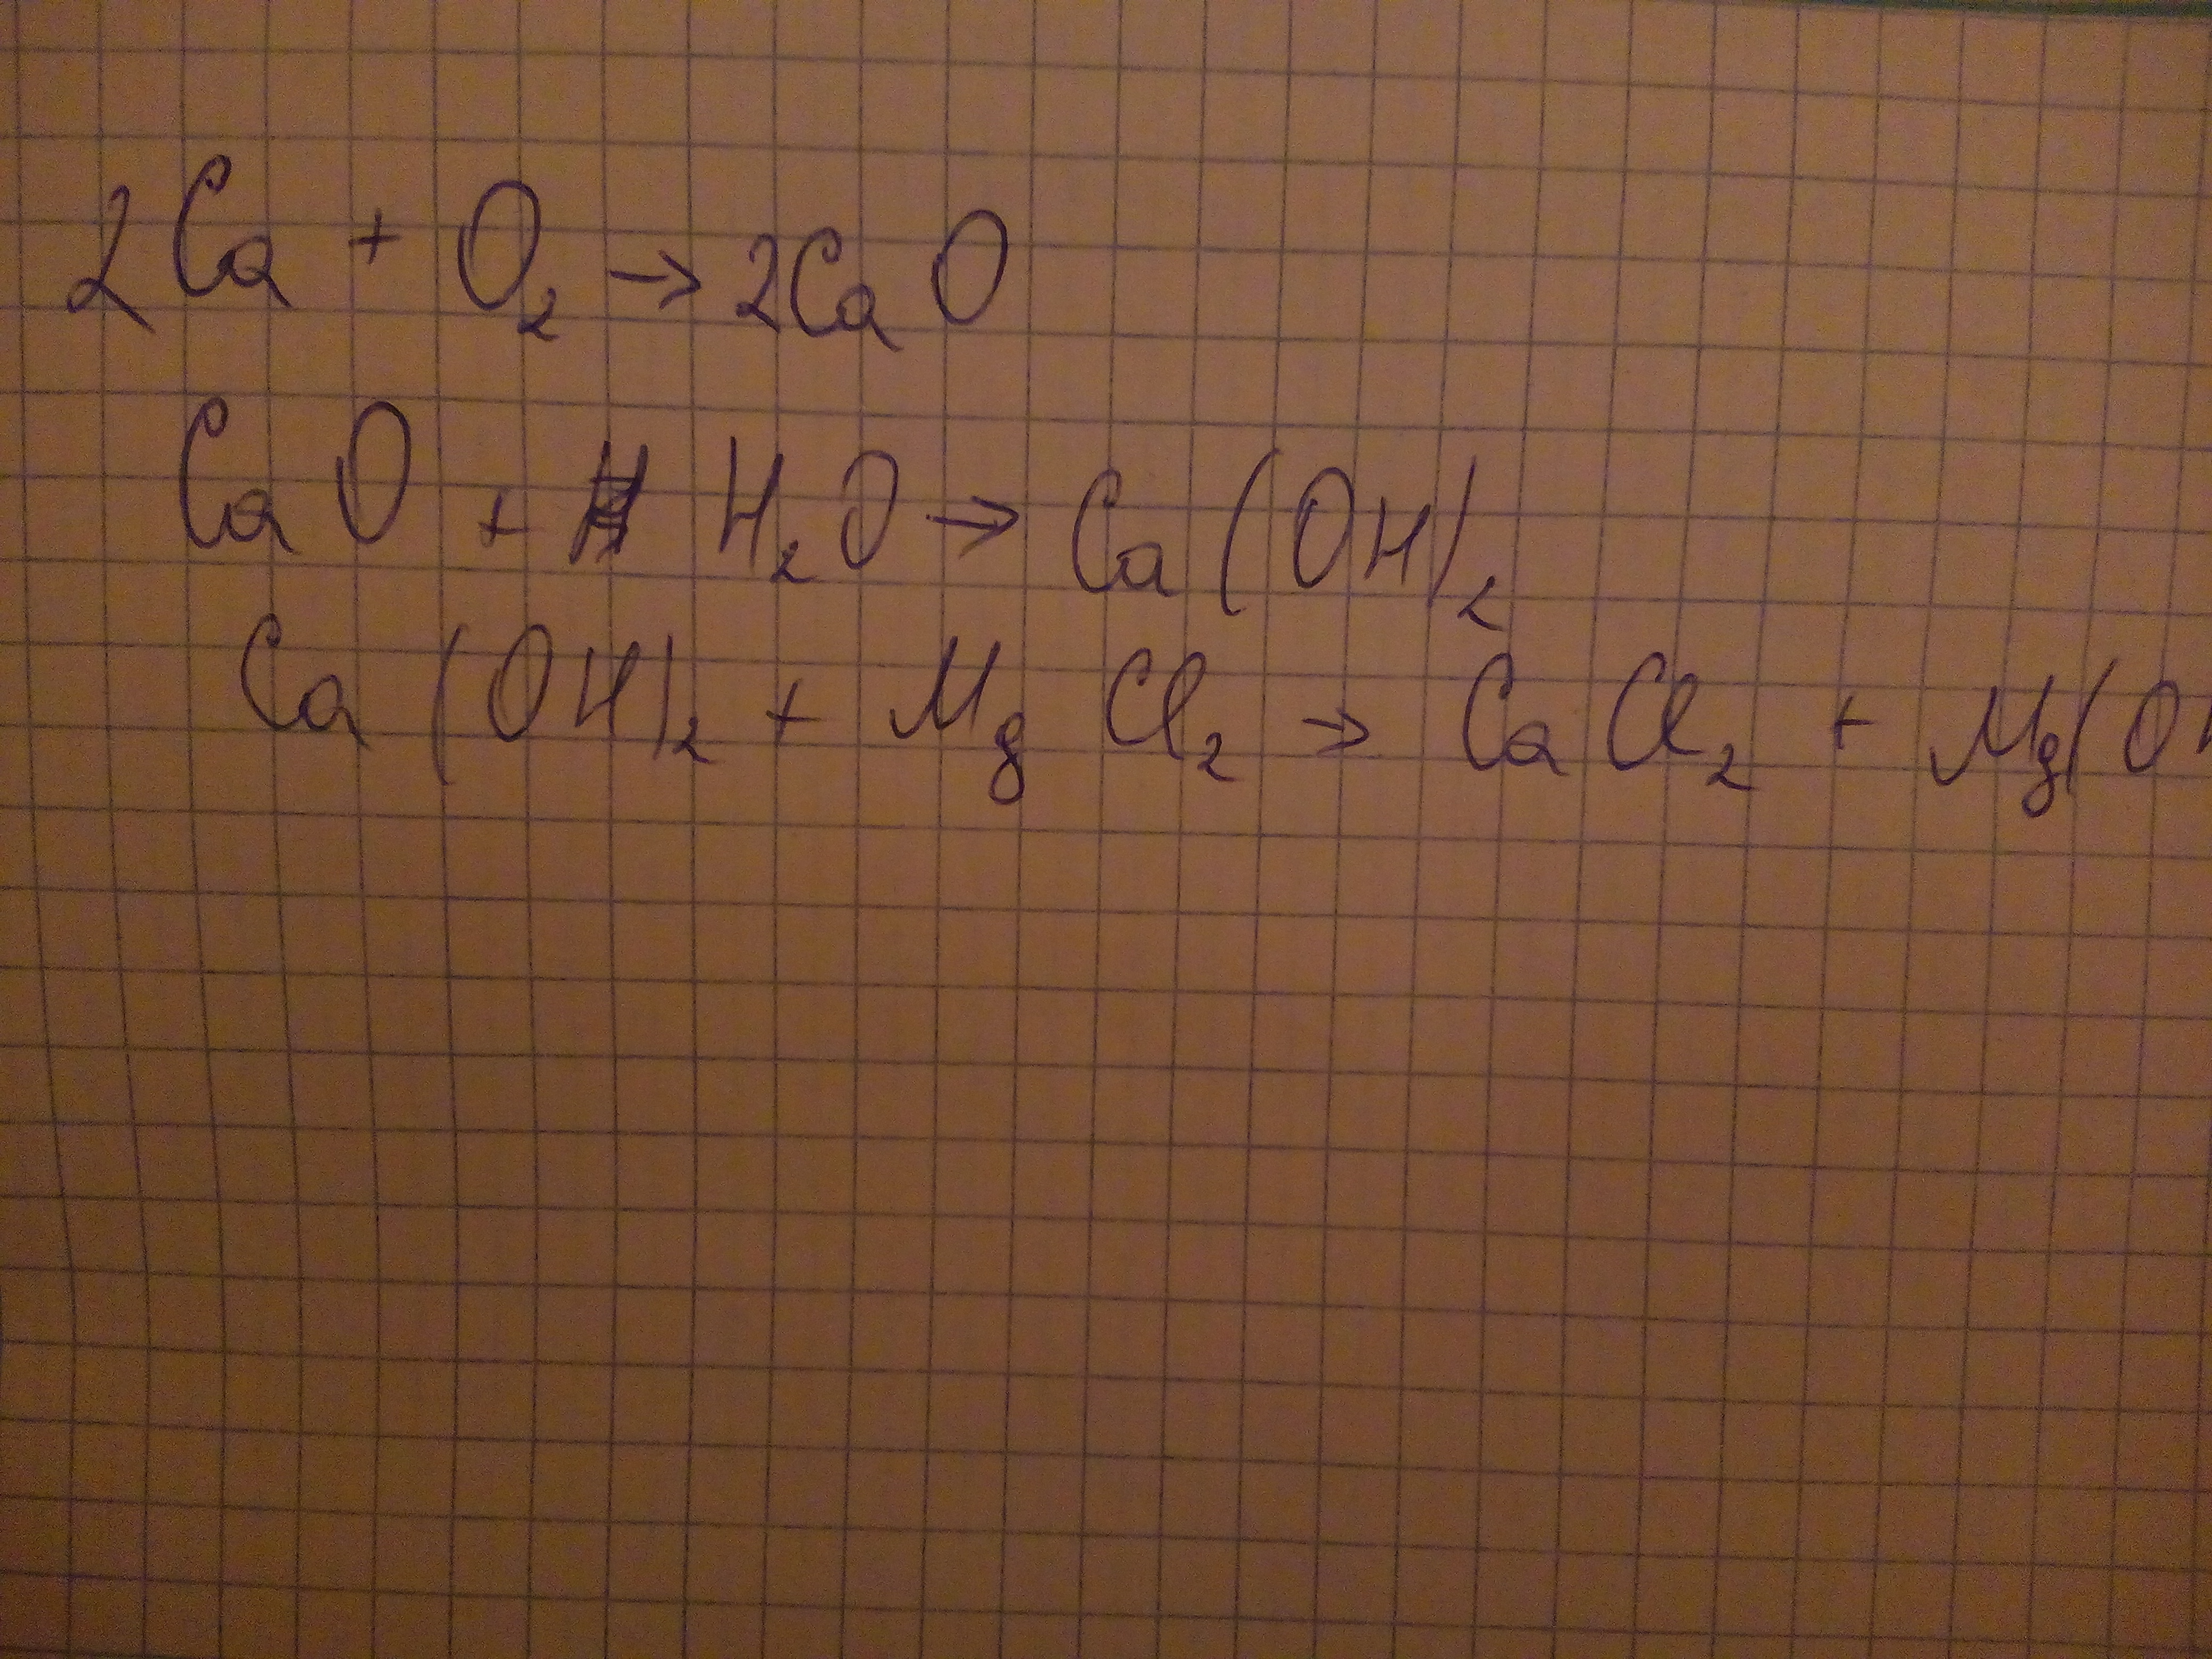 2Ca + O₂ → 2CaO
CaO + H₂O → Ca(OH)₂
Ca(OH)₂ + MgCl₂ → CaCl₂ + Mg(OH